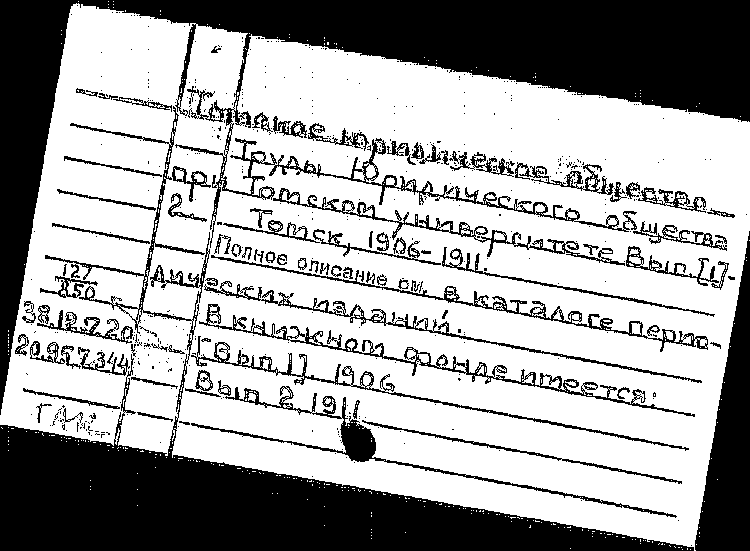 Томское юридическое общество.
Труды Юридического общества
при Томском университете Вып. [1]-
2. Томск, 1906-1911.
Полное описание см. в каталоге перио-
дических изданий.
В книжном фонде имеется:
[Вып. 1]. 1906
Вып. 2. 1911
127
850
38.18.7.20
20.957.344